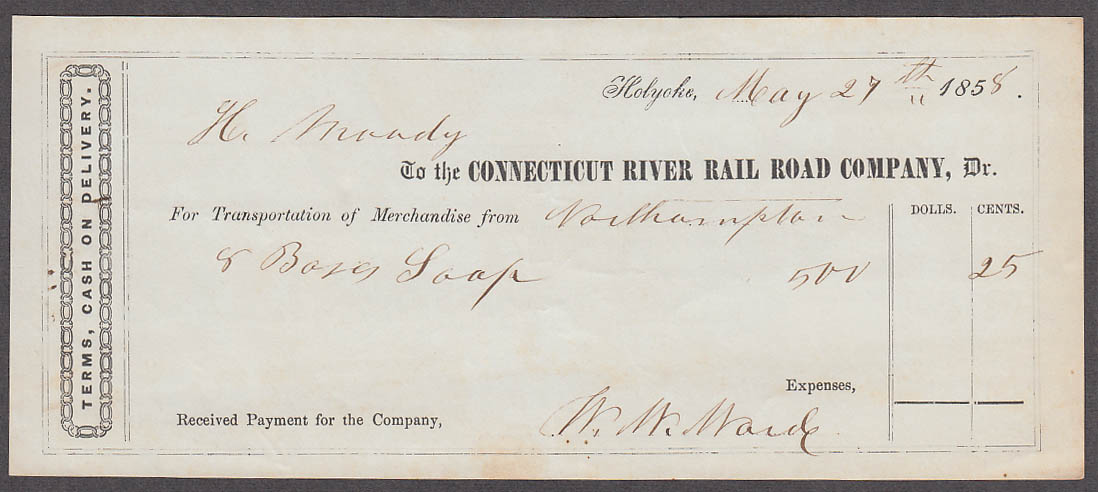 TERMS, CASH ON DELIVERY.
Holyoke, May 27th 1858.
H. Moody
To the CONNECTICUT RIVER RAIL ROAD COMPANY, Dr.
For Transportation of Merchandise from Northampton DOLLS. CENTS.
8 Boxes Soap 500 25
Expenses,
Received Payment for the Company, W. W. Ward